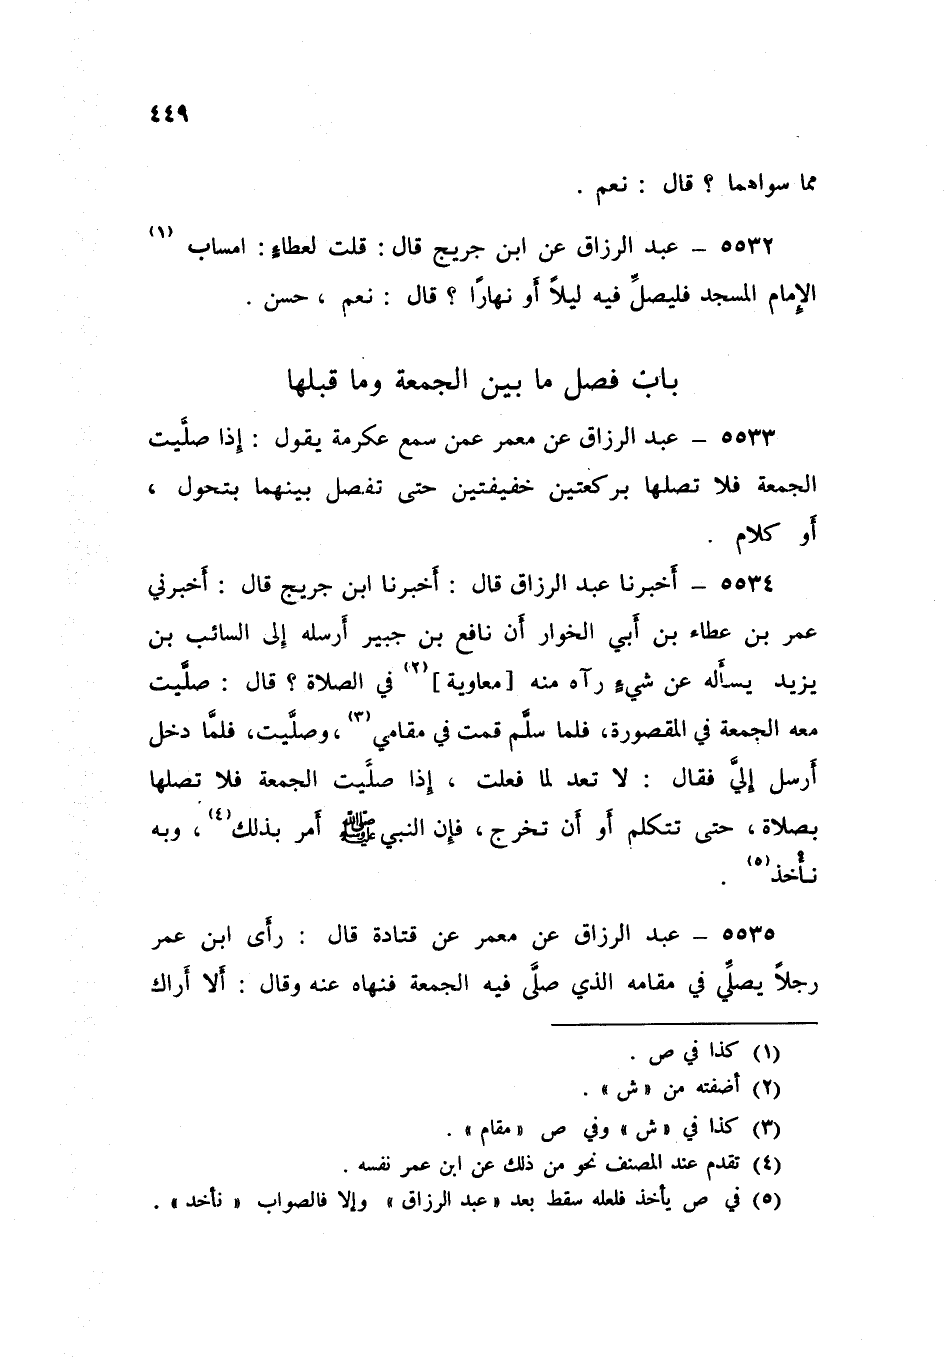 ٤٤٩
مما سواهما ؟ قال : نعم .
٥٥٣٢ – عبد الرزاق عن ابن جريج قال : قلت لعطاءٍ : امساب (١)
الإمام المسجد فليصلِّ فيه ليلاً أو نهارًا ؟ قال : نعم ، حسن .
باب فصل ما بين الجمعة وما قبلها
٥٥٣٣ – عبد الرزاق عن معمر عمن سمع عكرمة يقول : إذا صلَّيت
الجمعة فلا تصلها بركعتين خفيفتين حتى تفصل بينهما بتحول ،
أو كلام .
٥٥٣٤ – أخبرنا عبد الرزاق قال : أخبرنا ابن جريج قال : أخبرني
عمر بن عطاء بن أبي الخوار أن نافع بن جبير أرسله إلى السائب بن
يزيد يسأله عن شيءٍ رآه منه [معاوية] (٢) في الصلاة ؟ قال : صلَّيت
معه الجمعة في المقصورة، فلما سلَّم قمت في مقامي (٣) ، وصلَّيت، فلمَّا دخل
أرسل إليَّ فقال : لا تعد لما فعلت ، إذا صلَّيت الجمعة فلا تصلها
بصلاة ، حتى تتكلم أو أن تخرج ، فإن النبي ﷺ أمر بذلك (٤) ، وبه
نأخذ (٥) .
٥٥٣٥ – عبد الرزاق عن معمر عن قتادة قال : رأى ابن عمر
رجلاً يصلِّي في مقامه الذي صلَّى فيه الجمعة فنهاه عنه وقال : ألا أراك
(١) كذا في ص .
(٢) أضفته من « ش » .
(٣) كذا في « ش » وفي ص « مقام » .
(٤) تقدم عند المصنف نحو من ذلك عن ابن عمر نفسه .
(٥) في ص يأخذ فلعله سقط بعد « عبد الرزاق » وإلا فالصواب « نأخد » .